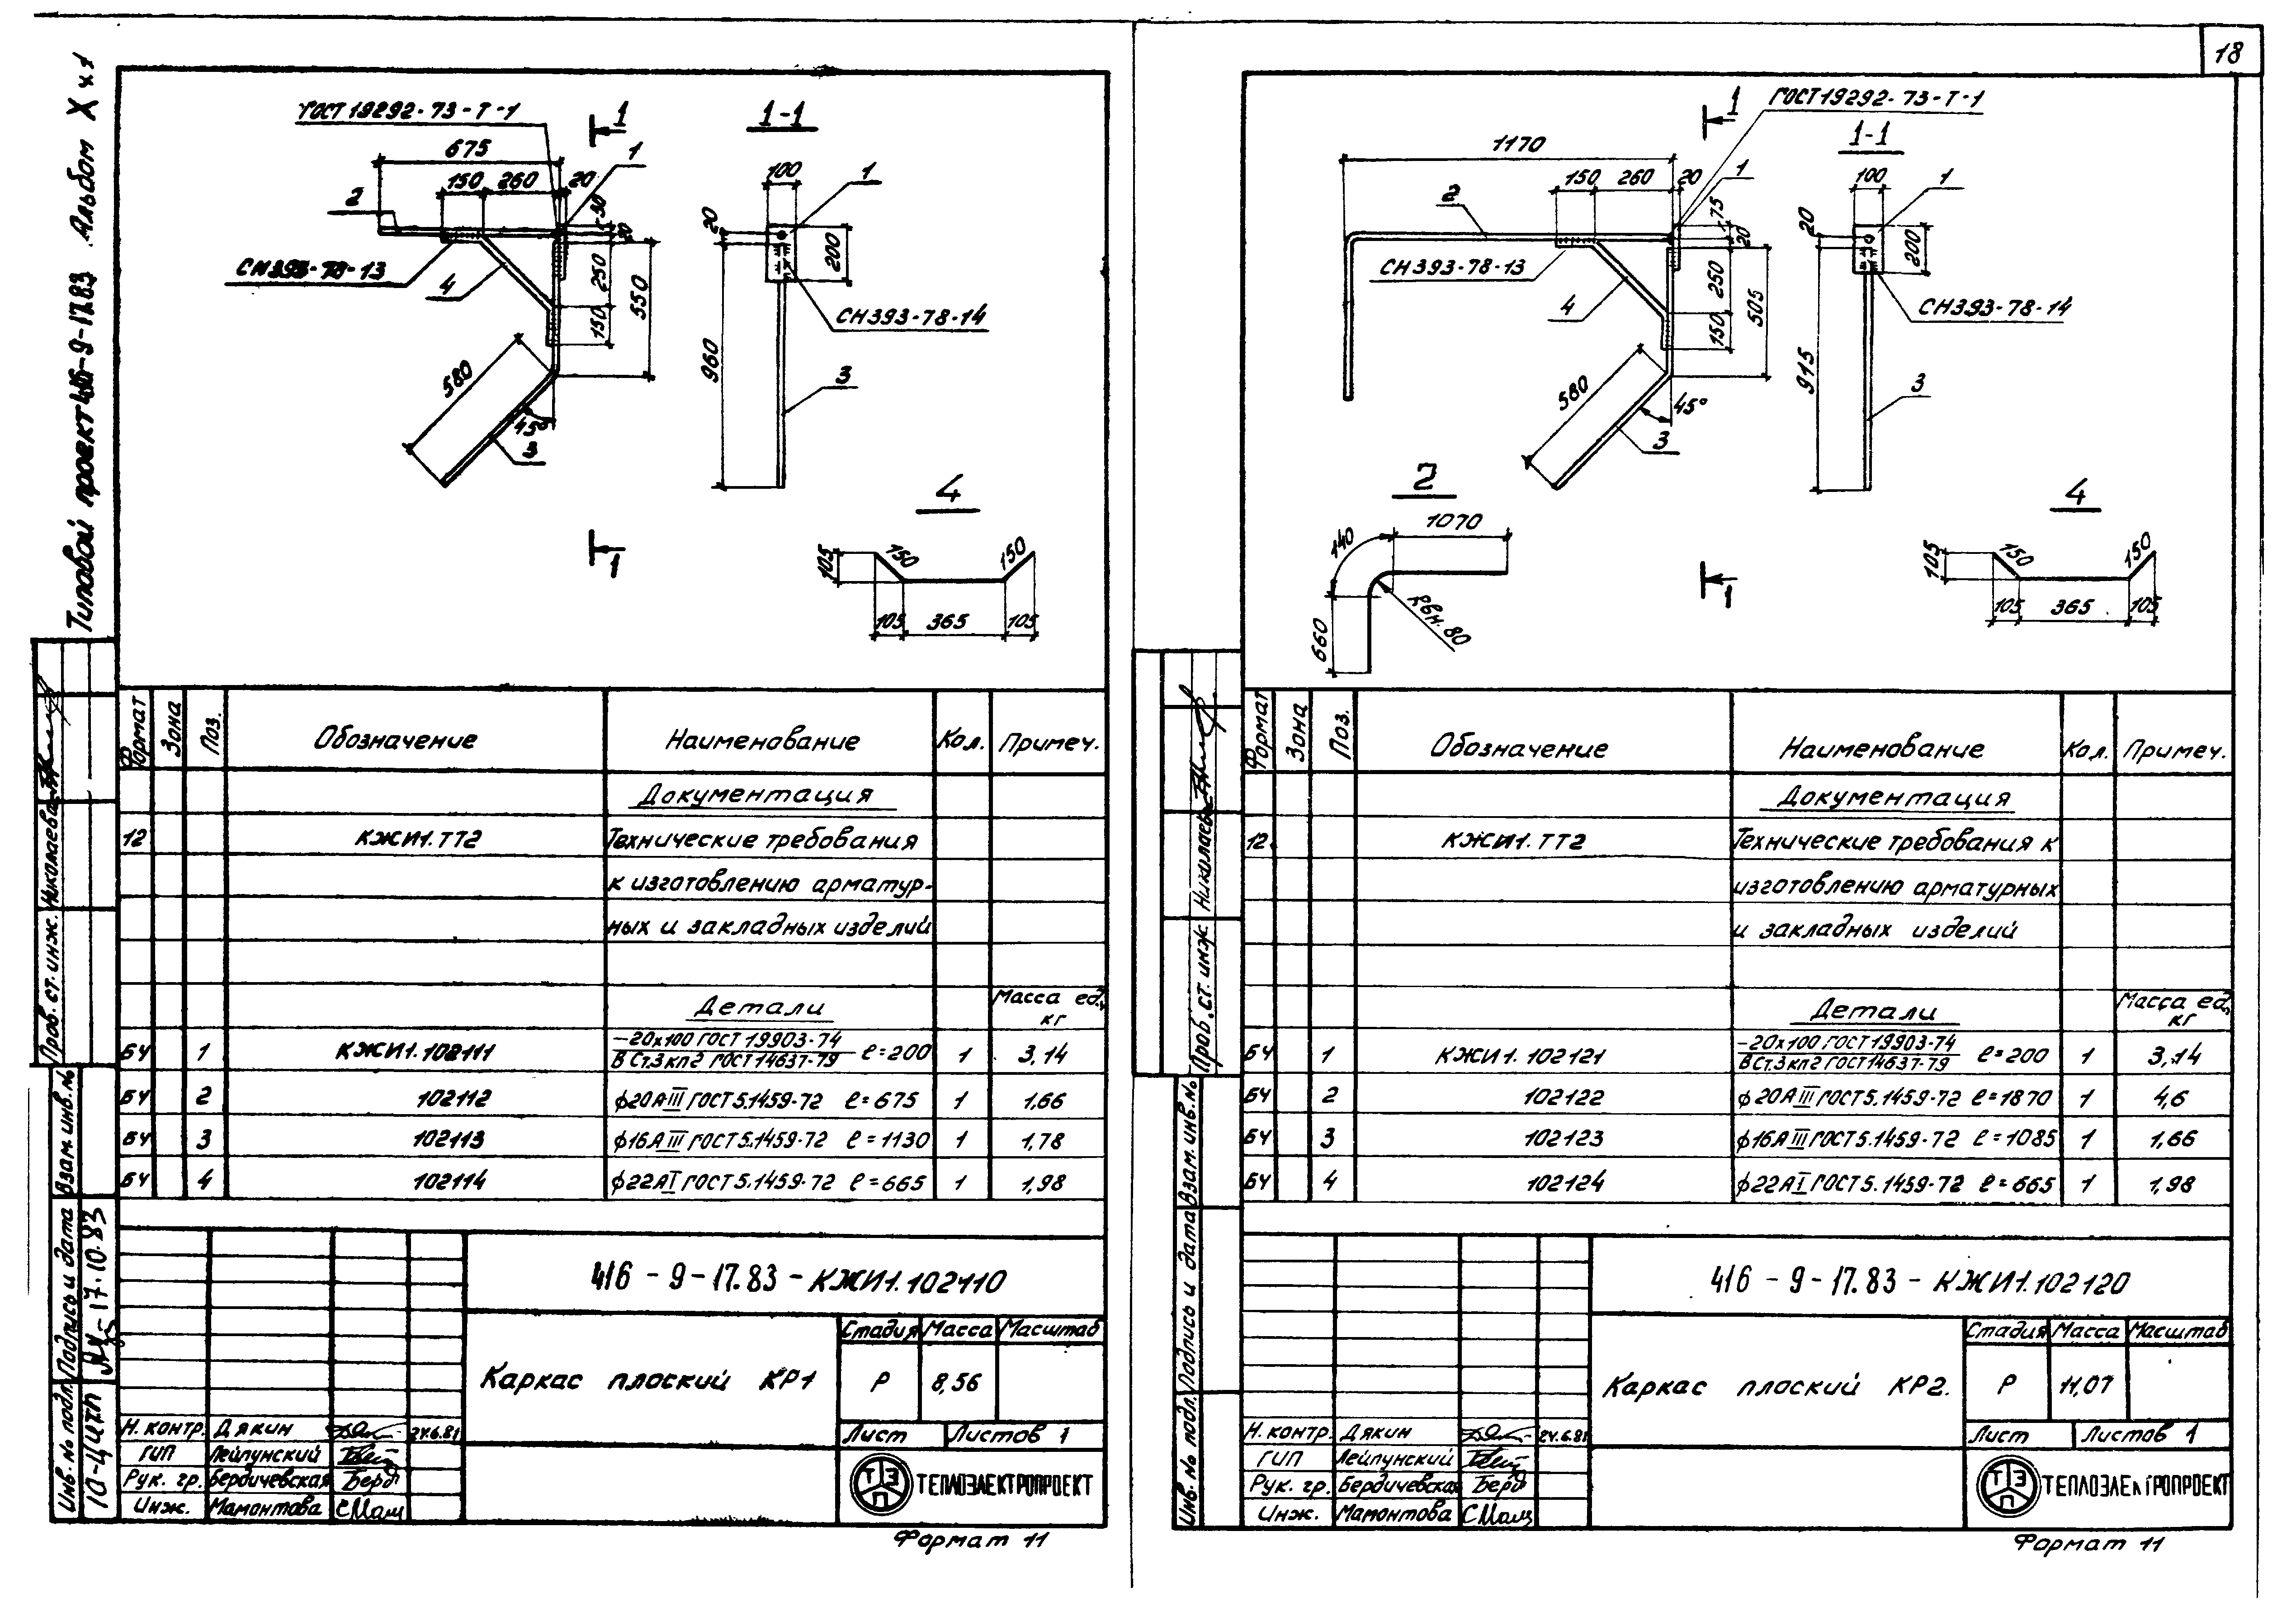 18
Типовой проект 416-9-17.83 Альбом X ч 1
ГОСТ 19292-73-Т-1
1
1-1
675
1
150 260 20
100
1
2
50
20
20
200
СН393-78-13
4
250
550
150
СН393-78-14
960
580
45°
3
3
4
1
105
150
150
105 365 105
Формат
Зона
Поз.
Обозначение
Наименование
Кол.
Примеч.
Документация
12 КЖИ1.ТТ2 Технические требования
к изготовлению арматур-
ных и закладных изделий
Детали
Масса ед.,
кг
БЧ 1 КЖИ1.102111 -20х100 ГОСТ 19903-74 ℓ=200 1 3,14
В Ст.3кп2 ГОСТ 14637-79
БЧ 2 102112 ф20АIII ГОСТ 5.1459-72 ℓ=675 1 1,66
БЧ 3 102113 ф16АIII ГОСТ 5.1459-72 ℓ=1130 1 1,78
БЧ 4 102114 ф22АI ГОСТ 5.1459-72 ℓ=665 1 1,98
416-9-17.83-КЖИ1.102110
Каркас плоский КР1
Стадия Масса Масштаб
Р 8,56
Лист Листов 1
Н. контр. Дякин 24.6.81
ГИП Лейпунский
Рук. гр. Бердичевская Берд
Инж. Мамонтова СМам
ТЭП
ТЕПЛОЭЛЕКТРОПРОЕКТ
Формат 11
Пров. ст. инж. Николаева
Взам. инв. №
Подпись и дата
17.10.83
Инв. № подл.
ГОСТ 19292-73-Т-1
1
1-1
1170
1
150 260 20
100
1
2
75
20
20
200
СН393-78-13
4
250
505
150
СН393-78-14
915
580
45°
3
3
2
1070
140
Rвн. 80
660
4
1
105
150
150
105 365 105
Формат
Зона
Поз.
Обозначение
Наименование
Кол.
Примеч.
Документация
12 КЖИ1.ТТ2 Технические требования к
изготовлению арматурных
и закладных изделий
Детали
Масса ед.,
кг
БЧ 1 КЖИ1.102121 -20х100 ГОСТ 19903-74 ℓ=200 1 3,14
В Ст.3кп2 ГОСТ 14637-79
БЧ 2 102122 ф20АIII ГОСТ 5.1459-72 ℓ=1870 1 4,6
БЧ 3 102123 ф16АIII ГОСТ 5.1459-72 ℓ=1085 1 1,66
БЧ 4 102124 ф22АI ГОСТ 5.1459-72 ℓ=665 1 1,98
416-9-17.83-КЖИ1.102120
Каркас плоский КР2.
Стадия Масса Масштаб
Р 11,07
Лист Листов 1
Н. контр. Дякин 24.6.81
ГИП Лейпунский
Рук. гр. Бердичевская Берд
Инж. Мамонтова СМам
ТЭП
ТЕПЛОЭЛЕКТРОПРОЕКТ
Формат 11
Пров. ст. инж. Николаева
Взам. инв. №
Подпись и дата
Инв. № подл.